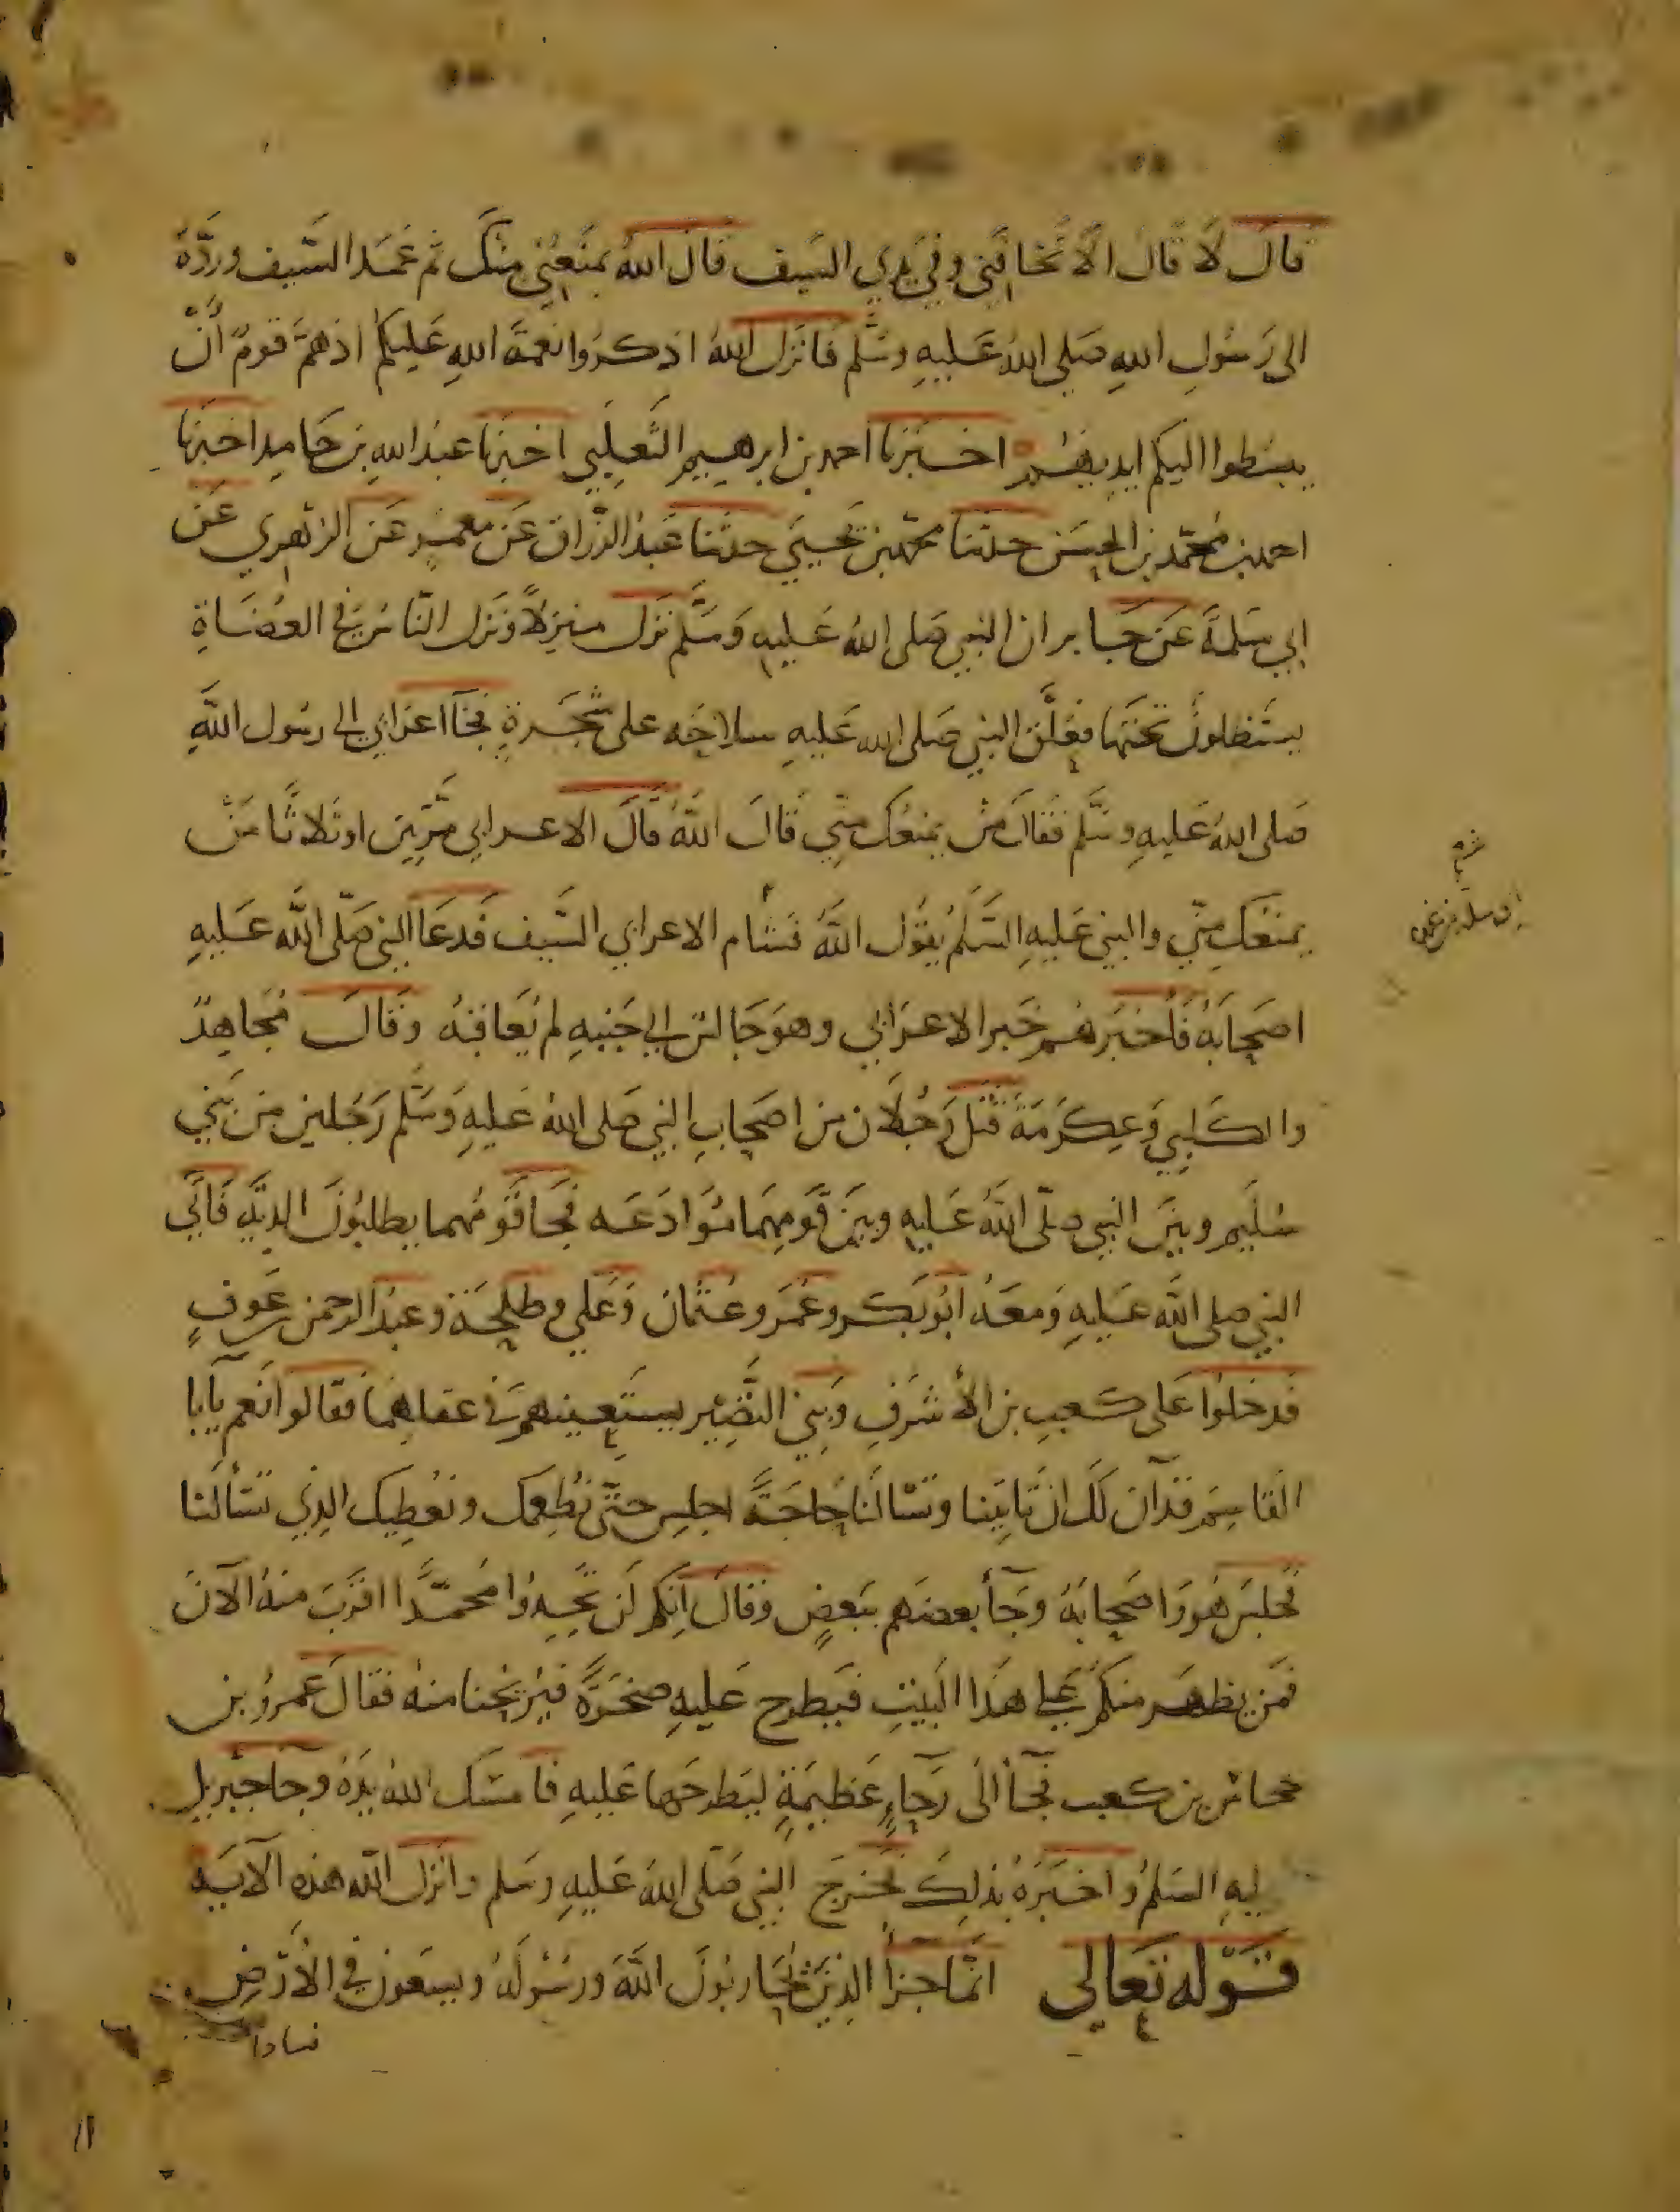 قال لا قال الا تخافني وفي يدي السيف قال الله يمنعني منك ثم غمد السيف وردّه
الى رسول الله صلى الله عليه وسلم فانزل الله اذكروا نعمة الله عليكم اذ همّ قوم أن
يبسطوا اليكم ايديهم اخبرنا احمد بن ابرهيم الثعلبي اخبرنا عبد الله بن حامد اخبرنا
احمد بن محمد بن الحسن حدثنا محمد بن يحيى حدثنا عبد الرزاق عن معمر عن الزهري عن
ابي سلمة عن جابر ان النبي صلى الله عليه وسلم نزل منزلاً ونزل الناس في العضاة
يستظلون تحتها فعلّق النبي صلى الله عليه سلاحه على شجرة فجآ اعرابي الى رسول الله
صلى الله عليه وسلم فقال من يمنعك مني قال الله قال الاعرابي مرّتين او ثلاثا من
يمنعك منّي والنبي عليه السلم يقول الله فشام الاعرابي السيف فدعا النبي صلّى الله عليه
اصحابه فاخبرهم خبر الاعرابي وهو جالس الى جنبه لم يعاقبه وقال مجاهد
والكلبي وعكرمة قتل رجلان من اصحاب النبي صلى الله عليه وسلم رجلين من بني
سليم وبين النبي صلّى الله عليه وبين قومهما موادعه فجا قومهما يطلبون الدية فاتى
النبي صلى الله عليه ومعه ابو بكر وعمر وعثمان وعلي وطلحة وعبد الرحمن بن عوف
فدخلوا على كعب بن الأشرف وبني النضير يستعينهم في عقلهما فقالوا نعم يآبا
القاسم قد آن لك ان تاتينا وتسالنا حاجة اجلس حتّى نطعمك ونعطيك الذي تسألنا
فجلس هو واصحابه وجآ بعضهم ببعض وقال انكم لن تجدوا محمدًا اقرب منه الآن
فمن يظهر منكم على هذا البيت فيطرح عليه صخرة فيريحنا منه فقال عمرو بن
جحاش بن كعب فجآ الى رحاء عظيمة ليطرحها عليه فامسك الله يده وجا جبريل
ليه السلم واخبره بذلك فخرج النبي صلّى الله عليه وسلم وانزل الله هذه الآيه
قوله تعالى انّما جزآ الذين يحاربون الله ورسوله ويسعون في الأرض
فسادا